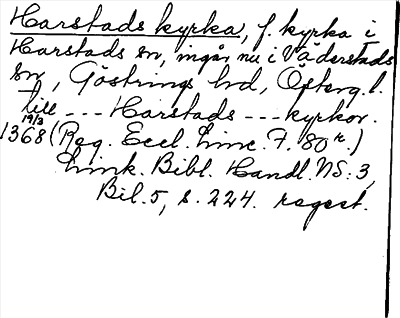 Harstads kyrka, f. kyrka i
Harstads sn, ingår nu i Väderstads
sn, Göstrings hd, Österg. l.
till --- Harstads --- kyrkor.
19/3
1368 (Reg. Eccl. Linc. F. 80r.)
Link. Bibl. Handl. NS: 3,
Bil. 5, s. 224. regest.